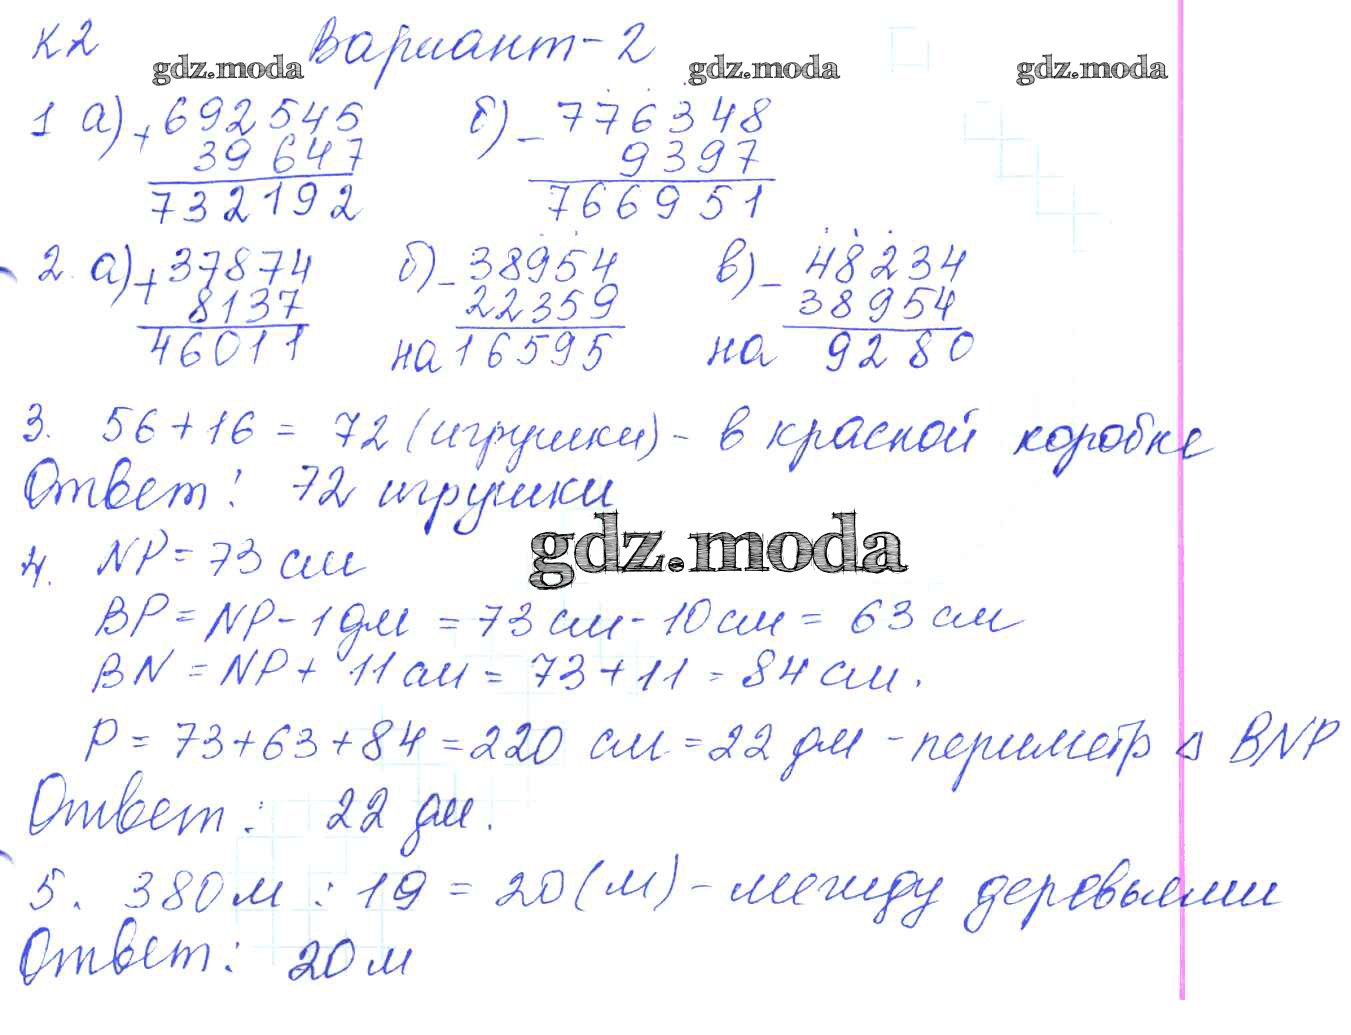 К2 Вариант-2
gdz.moda gdz.moda gdz.moda
1 а) + 692545 б) - 776348
39647 9397
732192 766951
2. а) + 37874 б) - 38954 в) - 48234
8137 22359 38954
46011 на 16595 на 9280
3. 56+16 = 72 (игрушки) - в красной коробке
Ответ: 72 игрушки
gdz.moda
4. NP = 73 см
BP = NP - 1 дм = 73 см - 10 см = 63 см
BN = NP + 11 см = 73+11 = 84 см.
P = 73+63+84 = 220 см = 22 дм - периметр Δ BNP
Ответ: 22 дм.
5. 380 м : 19 = 20 (м) - между деревьями
Ответ: 20 м